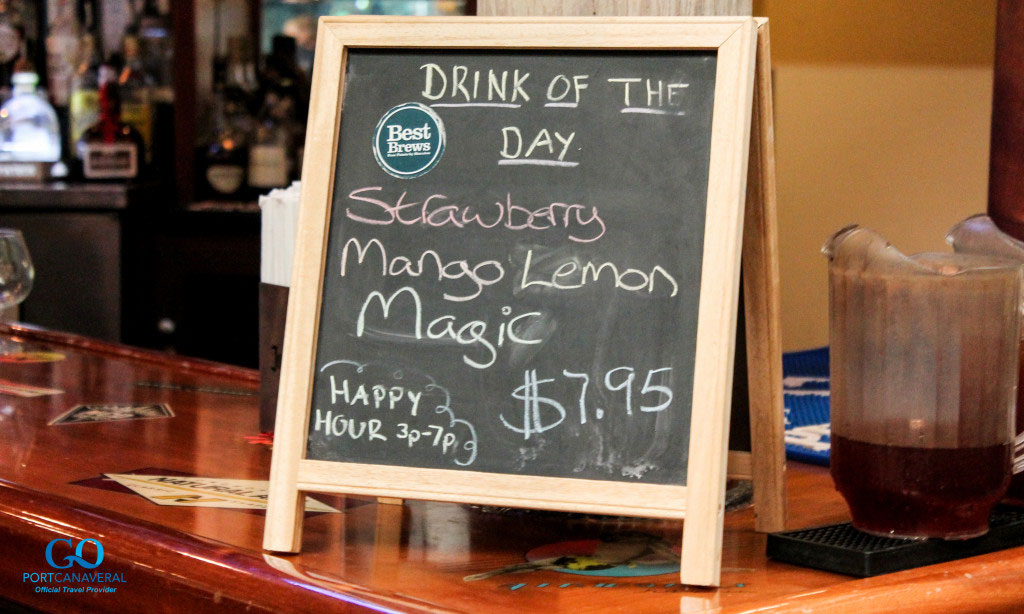 DRINK OF THE
DAY
Best
Brews
Strawberry
Mango Lemon
Magic
$7.95
HAPPY
HOUR 3p-7p
GO
PORTCANAVERAL
Official Travel Provider